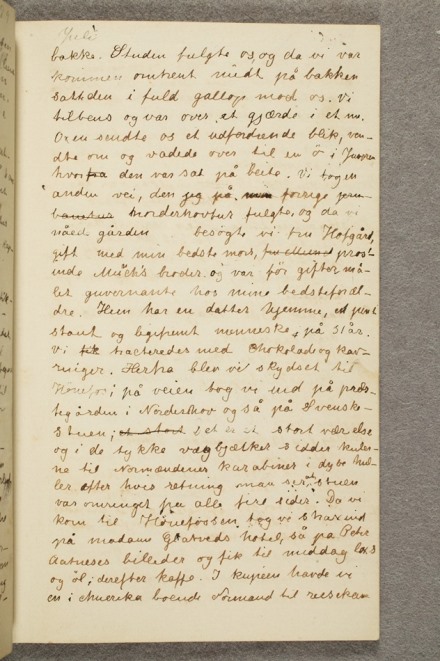 Juli
bakke. Studen fulgte os, og da vi var
kommen omtrent midt på bakken
satte den i fuld gallop mod os. Vi
tilbens og var over et gjærde i et nu.
Oxen sendte os et udfordrende blik, ven-
dte om og vadede over til en ö i
hvorfra den var sat på beite. Vi tog en
anden vei, den jeg på min forrige
Norderhovtur fulgte, og da vi
nåed gården besögte vi fru Hofgård,
gift med min bedstemors, prost-
inde Münch's broder, og var för giftermå-
let guvernante hos mine bedsteforæl-
dre. Hun har en datter hjemme, et
og menneske, på 31 år.
Vi trakteredes med Chokolad og kav-
ringer. Herfra blev vi skydset til
Hönefos; på veien tog vi ind på præs-
tegården i Norderhov og så på Svenske-
stuen; det er et stort værelse
og i de tykke vægbjælker sidder kuler-
ne til Normændenes karabiner i dybe hul-
ler efter hvis retning man ser at stuen
var omringet fra alle fire sider. Da vi
kom til Hönefossen, tog vi strax ind
på madame Glatveds hotel, så på Peter
Aadneses billeder og fik til middag lax
og öl; derefter kaffe. I kupeen havde vi
en i Amerika boende Normand til reisekam